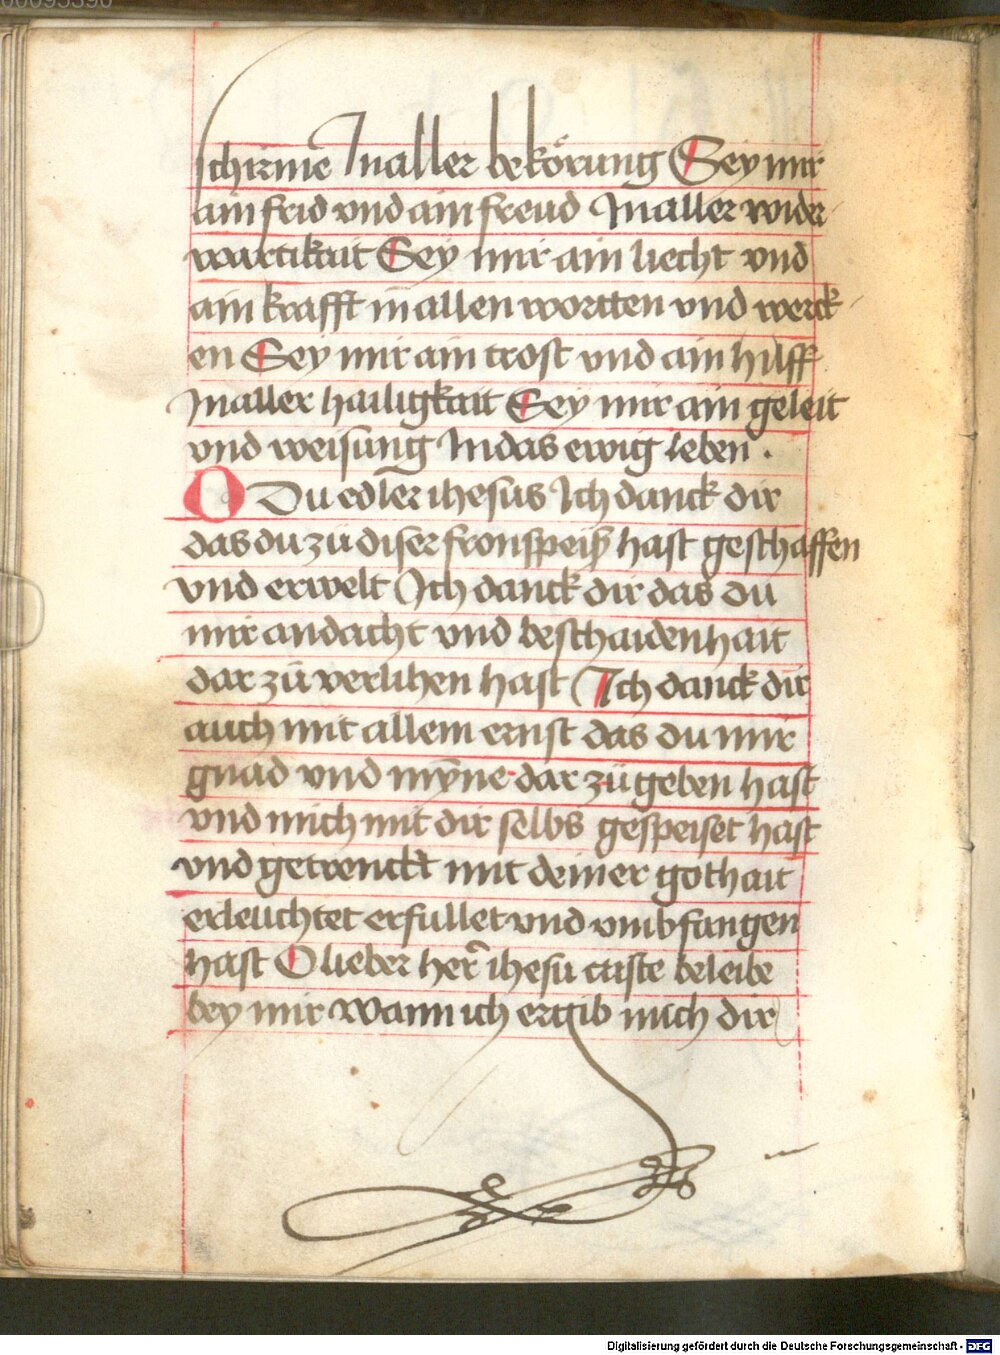 schirme͂ In aller bekörung Sey mir
ain frid vnd ain freud In aller wider
wartikait Sey mir ain liecht vnd
ain krafft in allen wortten vnd werck
en Sey mir ain trost vnd ain hilff
In aller hailigkait Sey mir ain geleit
vnd weisung In das ewig leben .
O Du edler ihesus Ich danck dir
das du zu diser fronspeiß hast geschaffen
vnd erwelt Ich danck dir das du
mir andacht vnd beschaidenhait
dar zu verlihen hast Ich danck dir
auch mit allem ernst das du mir
gnad vnd myne dar zu geben hast
vnd mich mit dir selbs gespeiset hast
vnd getrenckt mit deiner gothait
erleuchtet erfullet vnd vmbfangen
hast O lieber her͂ ihesu criste beleibe
bey mir wann ich ergib mich dir
Digitalisierung gefördert durch die Deutsche Forschungsgemeinschaft - DFG